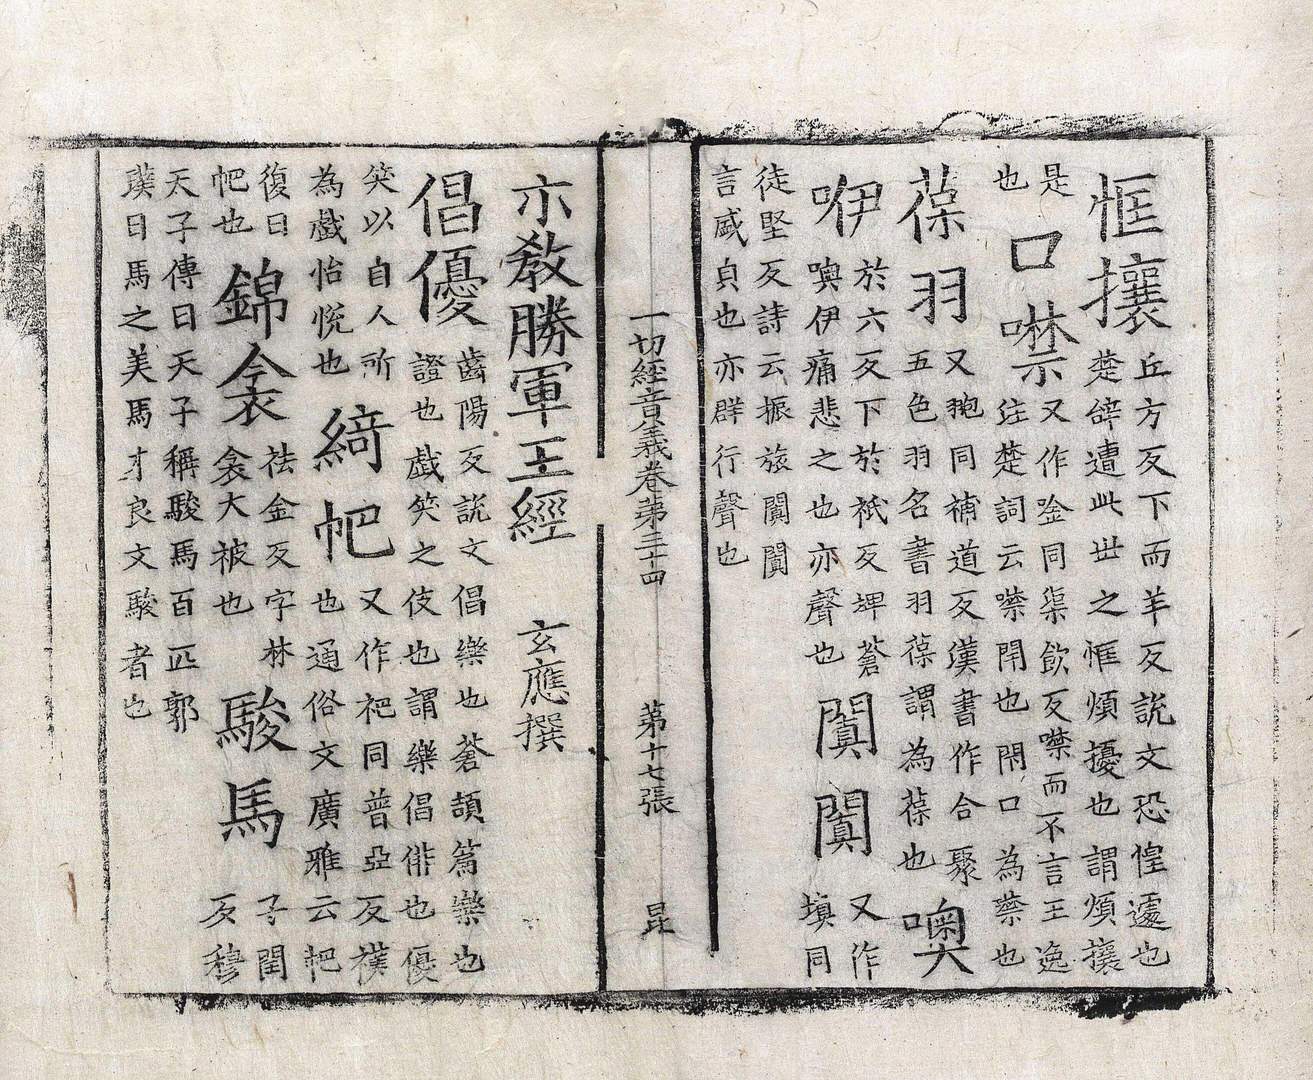 恇攘丘方反下而羊反說文恐惶遽也
楚辞遭此世之恇煩擾也謂煩攘
是
也
口噤又作唫同渠飲反噤而不言王逸
注楚詞云噤閇也閇口為噤也
葆羽又同補道反漢書作合聚
五色羽名書羽葆謂為葆也
噢
咿於六反下於祇反埤蒼
噢咿痛悲之也亦聲也
闐闐又作
塡同
徒堅反詩云振旅闐闐
言盛貞也亦群行聲也
一切經音義卷苐三十四 苐十七張 昆
示教勝軍王經 玄應撰
倡優齒陽反說文倡樂也蒼頡篇樂也
證也戲笑之伎也謂樂倡俳也優
笑以自人所
為戲怡悅也
綺帊又作杷同普亞反襆
也通俗文廣雅云帊
復曰
帊也
錦衾袪金反字林
衾大被也
駿馬子閏
反穆
天子傳曰天子稱駿馬百匹郭
璞曰馬之美馬才良文駿者也